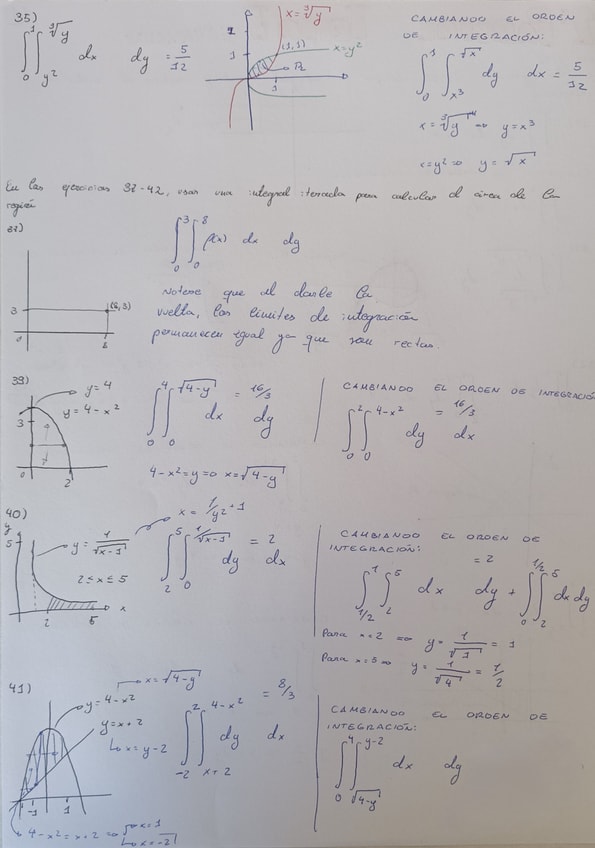 35)
∫₀¹ ∫_{y²}^{∛y} dx dy = 5/12
x = ∛y
(1,1)
x = y²
1
CAMBIANDO EL ORDEN
DE INTEGRACIÓN:
∫₀¹ ∫_{x³}^{√x} dy dx = 5/12
x = ∛y ⇒ y = x³
x = y² ⇒ y = √x
En los ejercicios 37-42, usar una integral iterada para calcular el área de la
región
37)
3
0
8
(8, 3)
∫₀³ ∫₀⁸ f(x) dx dy
Notese que al darle la
vuelta, los límites de integración
permanecen igual ya que son rectas.
39)
y = 4
y = 4 - x²
3
0
2
∫₀⁴ ∫₀^{√4-y} dx dy = 16/3
4 - x² = y ⇒ x = √4-y
CAMBIANDO EL ORDEN DE INTEGRACIÓN
∫₀² ∫₀^{4-x²} dy dx = 16/3
40)
y
5
y = 1/√x-1
x = 1/y² + 1
2 ≤ x ≤ 5
2
5
x
∫₂⁵ ∫₀^{1/√x-1} dy dx = 2
CAMBIANDO EL ORDEN DE
INTEGRACIÓN:
∫_{1/2}^{1} ∫₂⁵ dx dy + ∫₀^{1/2} ∫₂⁵ dx dy = 2
Para x = 2 ⇒ y = 1/√1 = 1
Para x = 5 ⇒ y = 1/√4 = 1/2
41)
x = √4-y
y = 4 - x²
y = x + 2
x = y - 2
-1
1
4 - x² = x + 2 ⇒ x = 1
x = -2
∫₋₂² ∫_{x+2}^{4-x²} dy dx = 8/3
CAMBIANDO EL ORDEN DE
INTEGRACIÓN:
∫₀⁴ ∫_{√4-y}^{y-2} dx dy